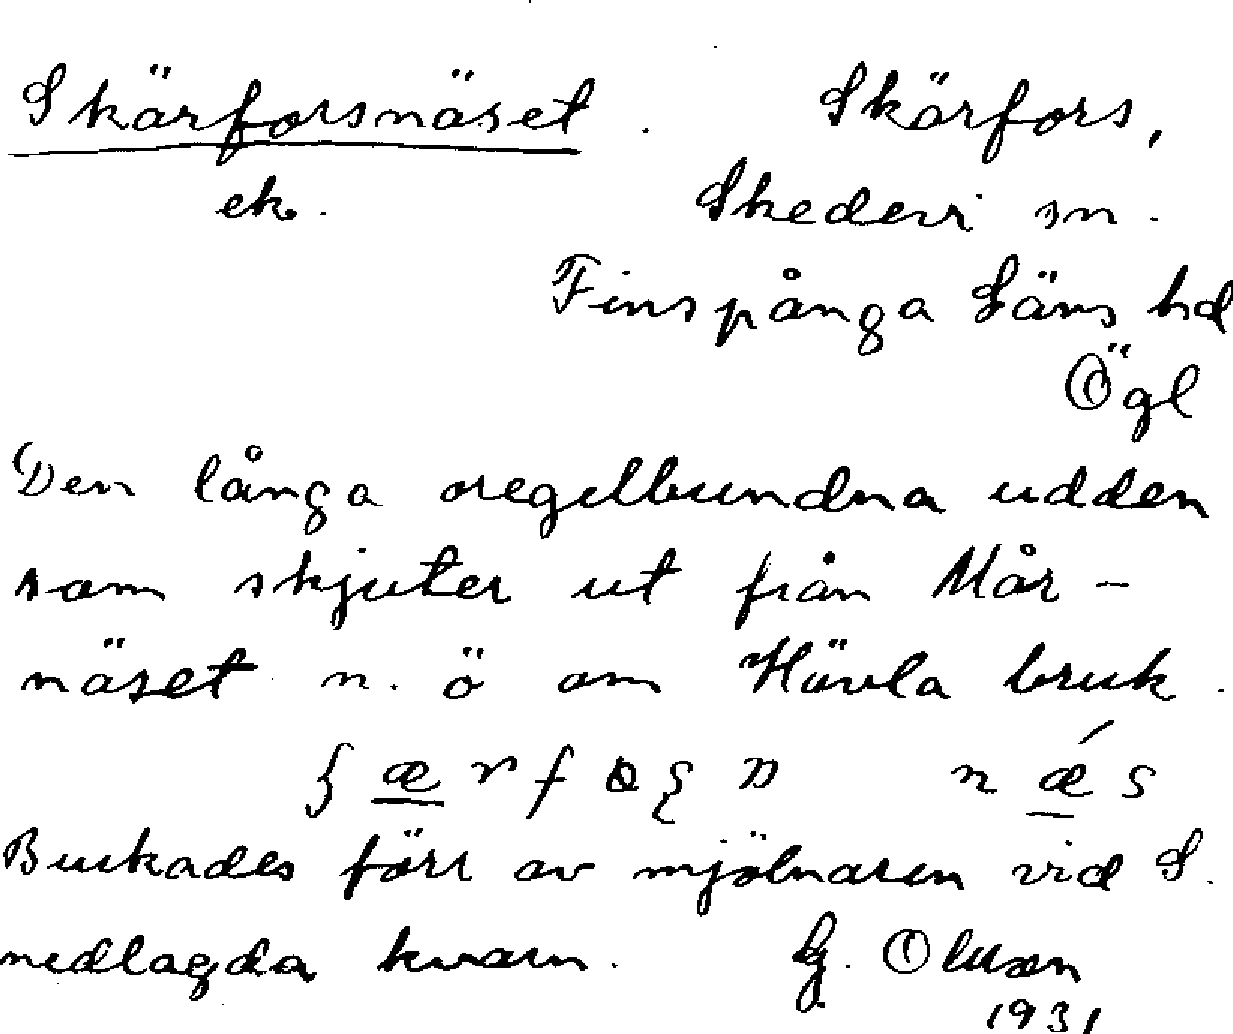 Skärforsnäset. Skärfors,
ek. Skedevi sn.
Finspånga Läns hd
Ögl
Den långa oregelbundna udden
som skjuter ut från Mår-
näset n. ö om Hävla bruk.
næ´s
Brukades förr av mjölnaren vid S.
nedlagda kvarn. G. Olsson
1931